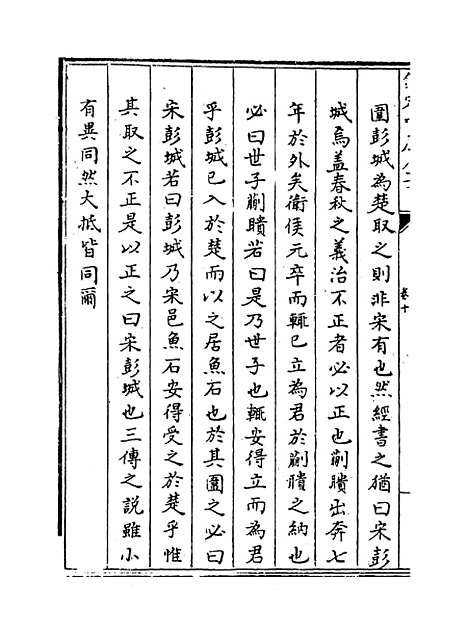 圍彭城為楚取之則非宋有也然經書之猶曰宋彭
城焉盖春秋之義治不正者必以正也蒯聵出奔七
年於外矣衛侯元卒而輒已立為君於蒯聵之納也
必曰世子蒯聵若曰是乃世子也輒安得立而為君
乎彭城已入於楚而以之居魚石也於其圍之必曰
宋彭城若曰彭城乃宋邑魚石安得受之於楚乎惟
其取之不正是以正之曰宋彭城也三傳之說雖小
有異同然大抵皆同爾
卷十